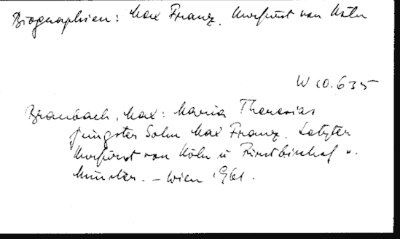 Biographien: Max Franz, Kurfürst von Köln
W 10.635
Braubach, Max: Maria Theresias
jüngster Sohn Max Franz. Letzter
Kurfürst von Köln u Fürstbischof v.
Münster. – Wien 1961.